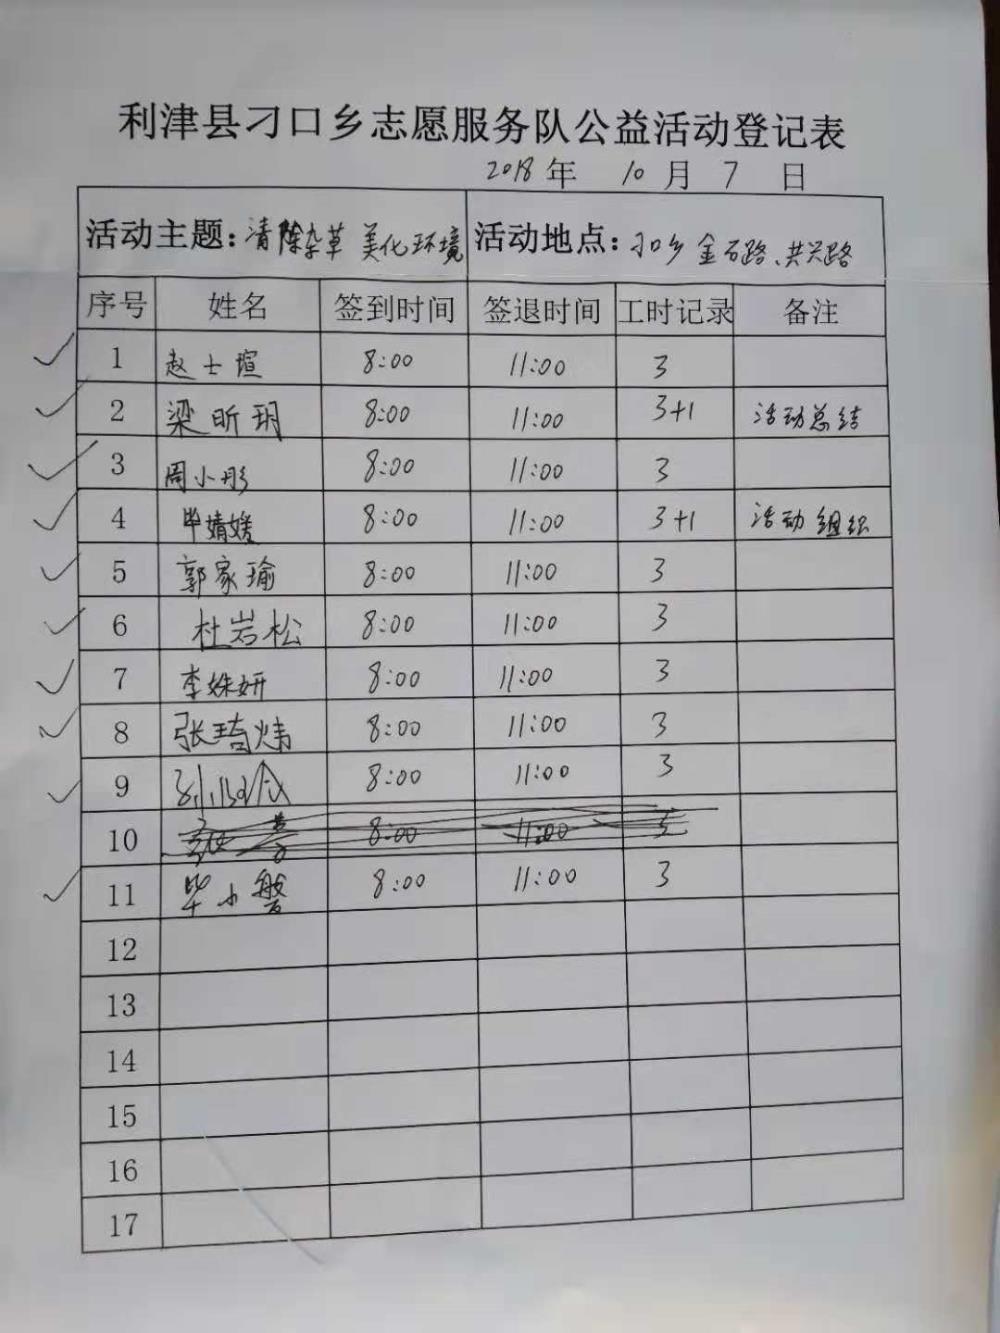 利津县刁口乡志愿服务队公益活动登记表
2018年 10月 7 日
活动主题:清除杂草 美化环境 活动地点:刁口乡 金石路、共兴路
序号 姓名 签到时间 签退时间 工时记录 备注
1 赵士瑄 8:00 11:00 3
2 梁昕玥 8:00 11:00 3+1 活动总结
3 周小彤 8:00 11:00 3
4 毕婧媛 8:00 11:00 3+1 活动组织
5 郭家瑜 8:00 11:00 3
6 杜岩松 8:00 11:00 3
7 李姝妍 8:00 11:00 3
8 张琦炜 8:00 11:00 3
9 8:00 11:00 3
10 8:00 11:00 3
11 毕小磐 8:00 11:00 3
12
13
14
15
16
17